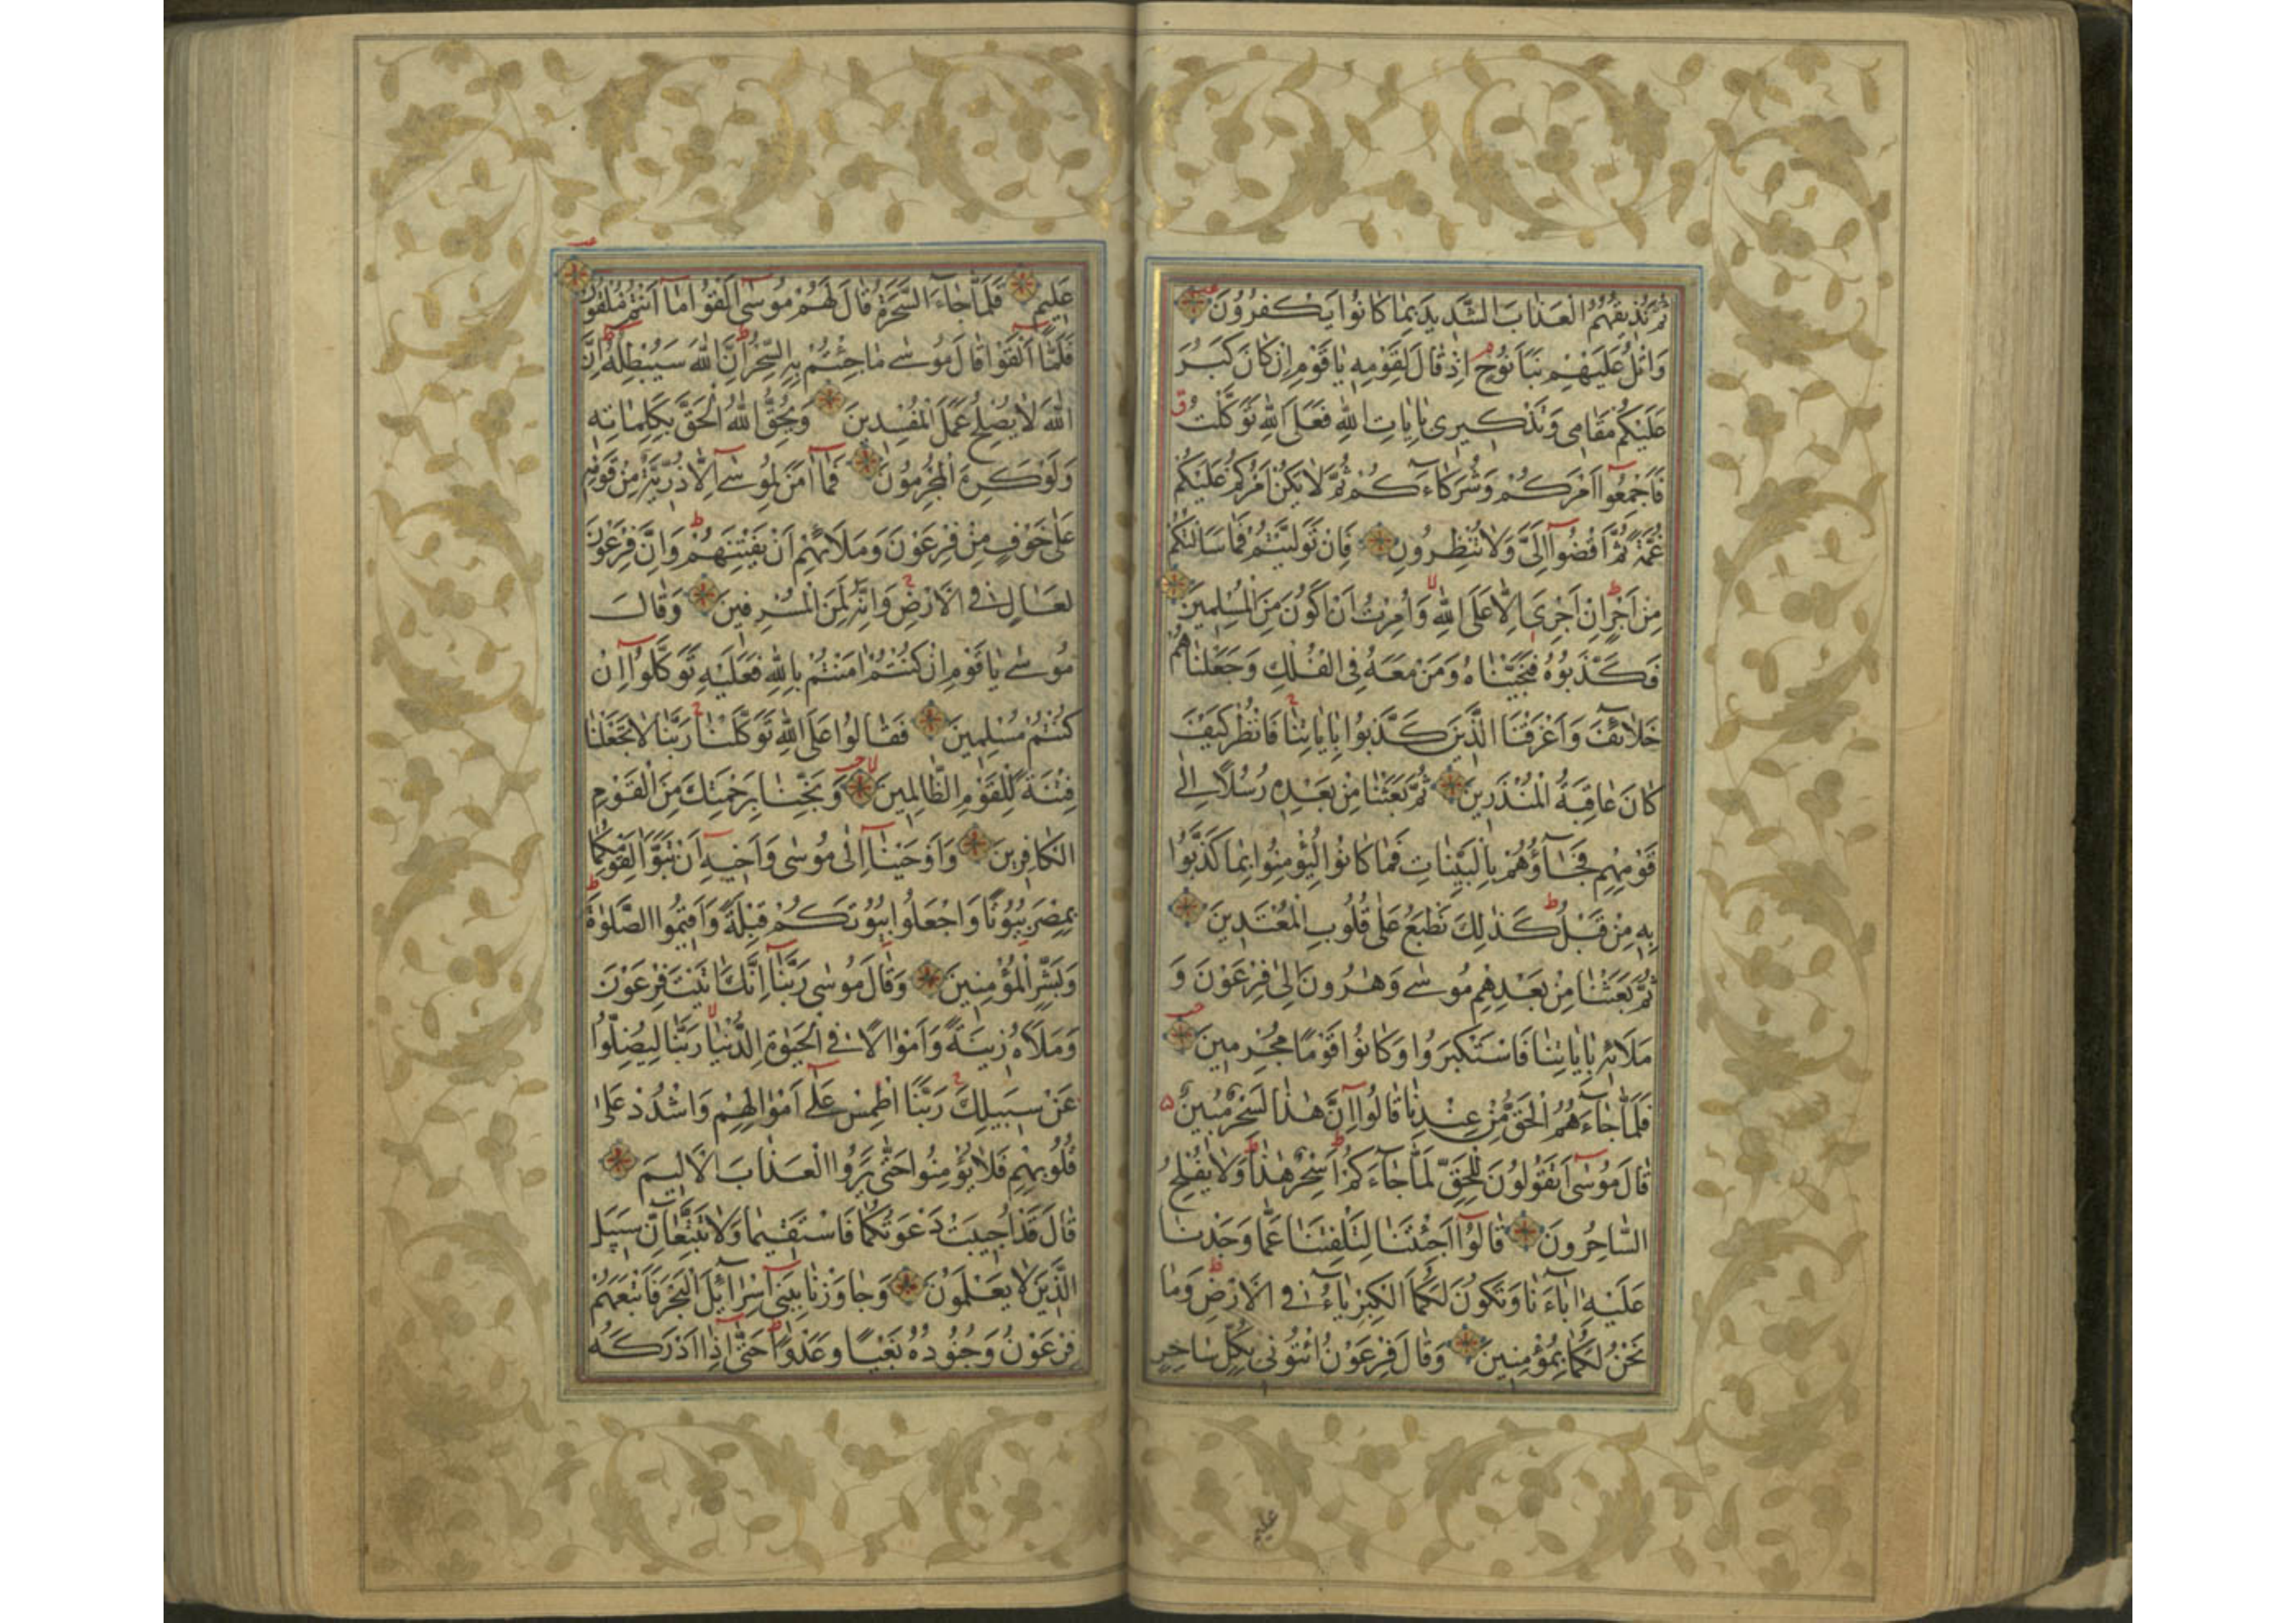 ثُمَّ نُذِيقُهُمُ الْعَذَابَ الشَّدِيدَ بِمَا كَانُوا يَكْفُرُونَ
وَاتْلُ عَلَيْهِمْ نَبَأَ نُوحٍ اِذْ قَالَ لِقَوْمِهِ يَا قَوْمِ اِنْ كَانَ كَبُرَ
عَلَيْكُمْ مَقَامِي وَتَذْكِيرِي بِاٰيَاتِ اللّٰهِ فَعَلَى اللّٰهِ تَوَكَّلْتُ
فَاَجْمِعُوا اَمْرَكُمْ وَشُرَكَاءَكُمْ ثُمَّ لَا يَكُنْ اَمْرُكُمْ عَلَيْكُمْ
غُمَّةً ثُمَّ اقْضُوا اِلَيَّ وَلَا تُنْظِرُونِ فَاِنْ تَوَلَّيْتُمْ فَمَا سَاَلْتُكُمْ
مِنْ اَجْرٍ اِنْ اَجْرِيَ اِلَّا عَلَى اللّٰهِ وَاُمِرْتُ اَنْ اَكُونَ مِنَ الْمُسْلِمِينَ
فَكَذَّبُوهُ فَنَجَّيْنَاهُ وَمَنْ مَعَهُ فِي الْفُلْكِ وَجَعَلْنَاهُمْ
خَلَائِفَ وَاَغْرَقْنَا الَّذِينَ كَذَّبُوا بِاٰيَاتِنَا فَانْظُرْ كَيْفَ
كَانَ عَاقِبَةُ الْمُنْذَرِينَ ثُمَّ بَعَثْنَا مِنْ بَعْدِهِ رُسُلًا اِلٰى
قَوْمِهِمْ فَجَاؤُهُمْ بِالْبَيِّنَاتِ فَمَا كَانُوا لِيُؤْمِنُوا بِمَا كَذَّبُوا
بِهِ مِنْ قَبْلُ كَذٰلِكَ نَطْبَعُ عَلٰى قُلُوبِ الْمُعْتَدِينَ
ثُمَّ بَعَثْنَا مِنْ بَعْدِهِمْ مُوسٰى وَهٰرُونَ اِلٰى فِرْعَوْنَ وَ
مَلَائِهِ بِاٰيَاتِنَا فَاسْتَكْبَرُوا وَكَانُوا قَوْمًا مُجْرِمِينَ
فَلَمَّا جَاءَهُمُ الْحَقُّ مِنْ عِنْدِنَا قَالُوا اِنَّ هٰذَا لَسِحْرٌ مُبِينٌ
قَالَ مُوسٰى اَتَقُولُونَ لِلْحَقِّ لَمَّا جَاءَكُمْ اَسِحْرٌ هٰذَا وَلَا يُفْلِحُ
السَّاحِرُونَ قَالُوا اَجِئْتَنَا لِتَلْفِتَنَا عَمَّا وَجَدْنَا
عَلَيْهِ اٰبَاءَنَا وَتَكُونَ لَكُمَا الْكِبْرِيَاءُ فِي الْاَرْضِ وَمَا
نَحْنُ لَكُمَا بِمُؤْمِنِينَ وَقَالَ فِرْعَوْنُ ائْتُونِي بِكُلِّ سَاحِرٍ
عليم
عَلِيمٍ فَلَمَّا جَاءَ السَّحَرَةُ قَالَ لَهُمْ مُوسٰى اَلْقُوا مَا اَنْتُمْ مُلْقُونَ
فَلَمَّا اَلْقَوْا قَالَ مُوسٰى مَا جِئْتُمْ بِهِ السِّحْرُ اِنَّ اللّٰهَ سَيُبْطِلُهُ اِنَّ
اللّٰهَ لَا يُصْلِحُ عَمَلَ الْمُفْسِدِينَ وَيُحِقُّ اللّٰهُ الْحَقَّ بِكَلِمَاتِهِ
وَلَوْ كَرِهَ الْمُجْرِمُونَ فَمَا اٰمَنَ لِمُوسٰى اِلَّا ذُرِّيَّةٌ مِنْ قَوْمِهِ
عَلٰى خَوْفٍ مِنْ فِرْعَوْنَ وَمَلَائِهِمْ اَنْ يَفْتِنَهُمْ وَاِنَّ فِرْعَوْنَ
لَعَالٍ فِي الْاَرْضِ وَاِنَّهُ لَمِنَ الْمُسْرِفِينَ وَقَالَ
مُوسٰى يَا قَوْمِ اِنْ كُنْتُمْ اٰمَنْتُمْ بِاللّٰهِ فَعَلَيْهِ تَوَكَّلُوا اِنْ
كُنْتُمْ مُسْلِمِينَ فَقَالُوا عَلَى اللّٰهِ تَوَكَّلْنَا رَبَّنَا لَا تَجْعَلْنَا
فِتْنَةً لِلْقَوْمِ الظَّالِمِينَ وَنَجِّنَا بِرَحْمَتِكَ مِنَ الْقَوْمِ
الْكَافِرِينَ وَاَوْحَيْنَا اِلٰى مُوسٰى وَاَخِيهِ اَنْ تَبَوَّاٰ لِقَوْمِكُمَا
بِمِصْرَ بُيُوتًا وَاجْعَلُوا بُيُوتَكُمْ قِبْلَةً وَاَقِيمُوا الصَّلٰوةَ
وَبَشِّرِ الْمُؤْمِنِينَ وَقَالَ مُوسٰى رَبَّنَا اِنَّكَ اٰتَيْتَ فِرْعَوْنَ
وَمَلَاَهُ زِينَةً وَاَمْوَالًا فِي الْحَيٰوةِ الدُّنْيَا رَبَّنَا لِيُضِلُّوا
عَنْ سَبِيلِكَ رَبَّنَا اطْمِسْ عَلٰى اَمْوَالِهِمْ وَاشْدُدْ عَلٰى
قُلُوبِهِمْ فَلَا يُؤْمِنُوا حَتّٰى يَرَوُا الْعَذَابَ الْاَلِيمَ
قَالَ قَدْ اُجِيبَتْ دَعْوَتُكُمَا فَاسْتَقِيمَا وَلَا تَتَّبِعَانِّ سَبِيلَ
الَّذِينَ لَا يَعْلَمُونَ وَجَاوَزْنَا بِبَنِي اِسْرَائِلَ الْبَحْرَ فَاَتْبَعَهُمْ
فِرْعَوْنُ وَجُنُودُهُ بَغْيًا وَعَدْوًا حَتّٰى اِذَا اَدْرَكَهُ